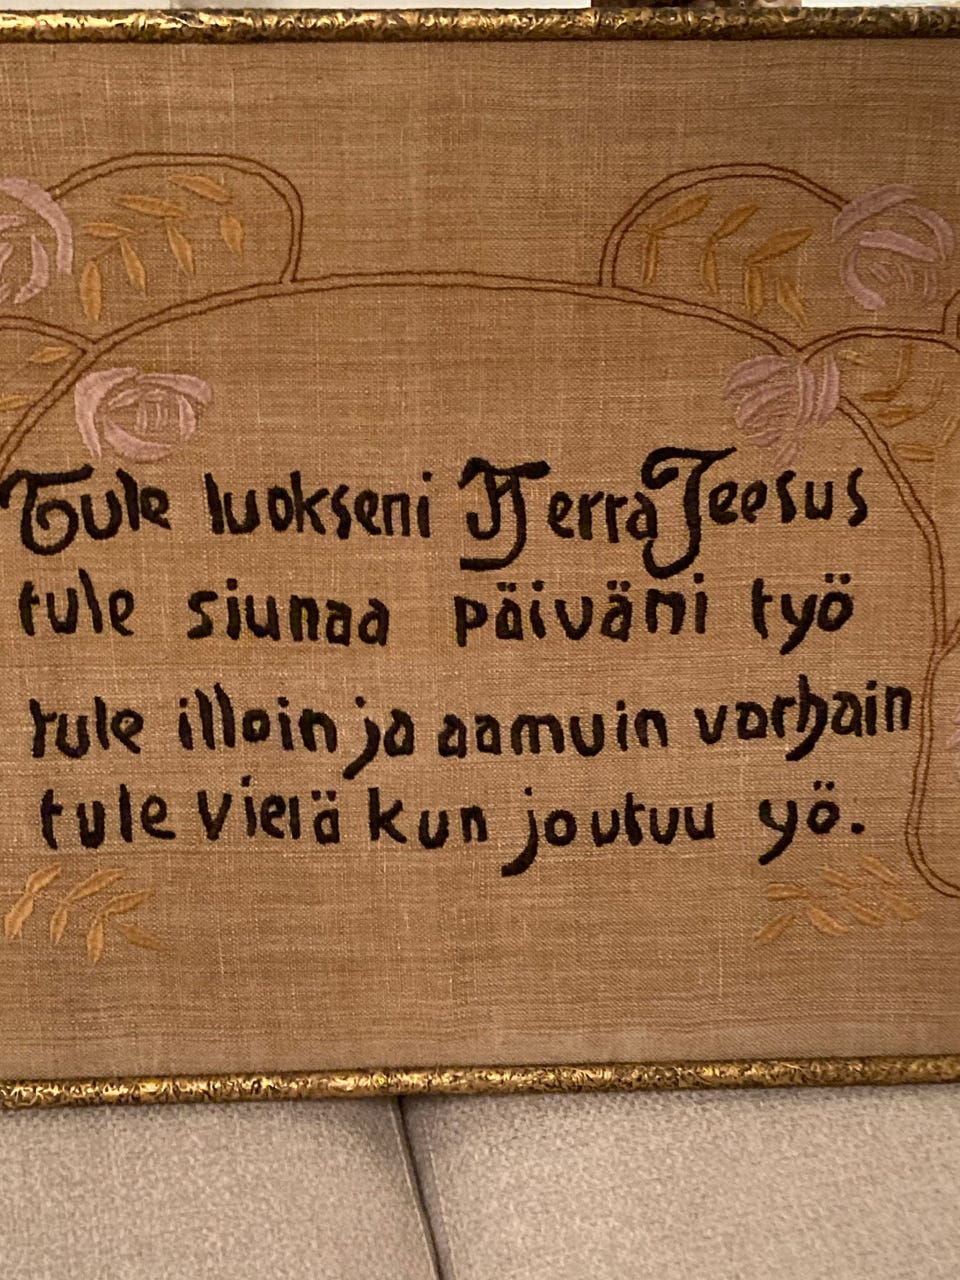 Tule luokseni Herra Jeesus
tule siunaa päiväni työ
tule illoin ja aamuin varhain
tule vielä kun joutuu yö.